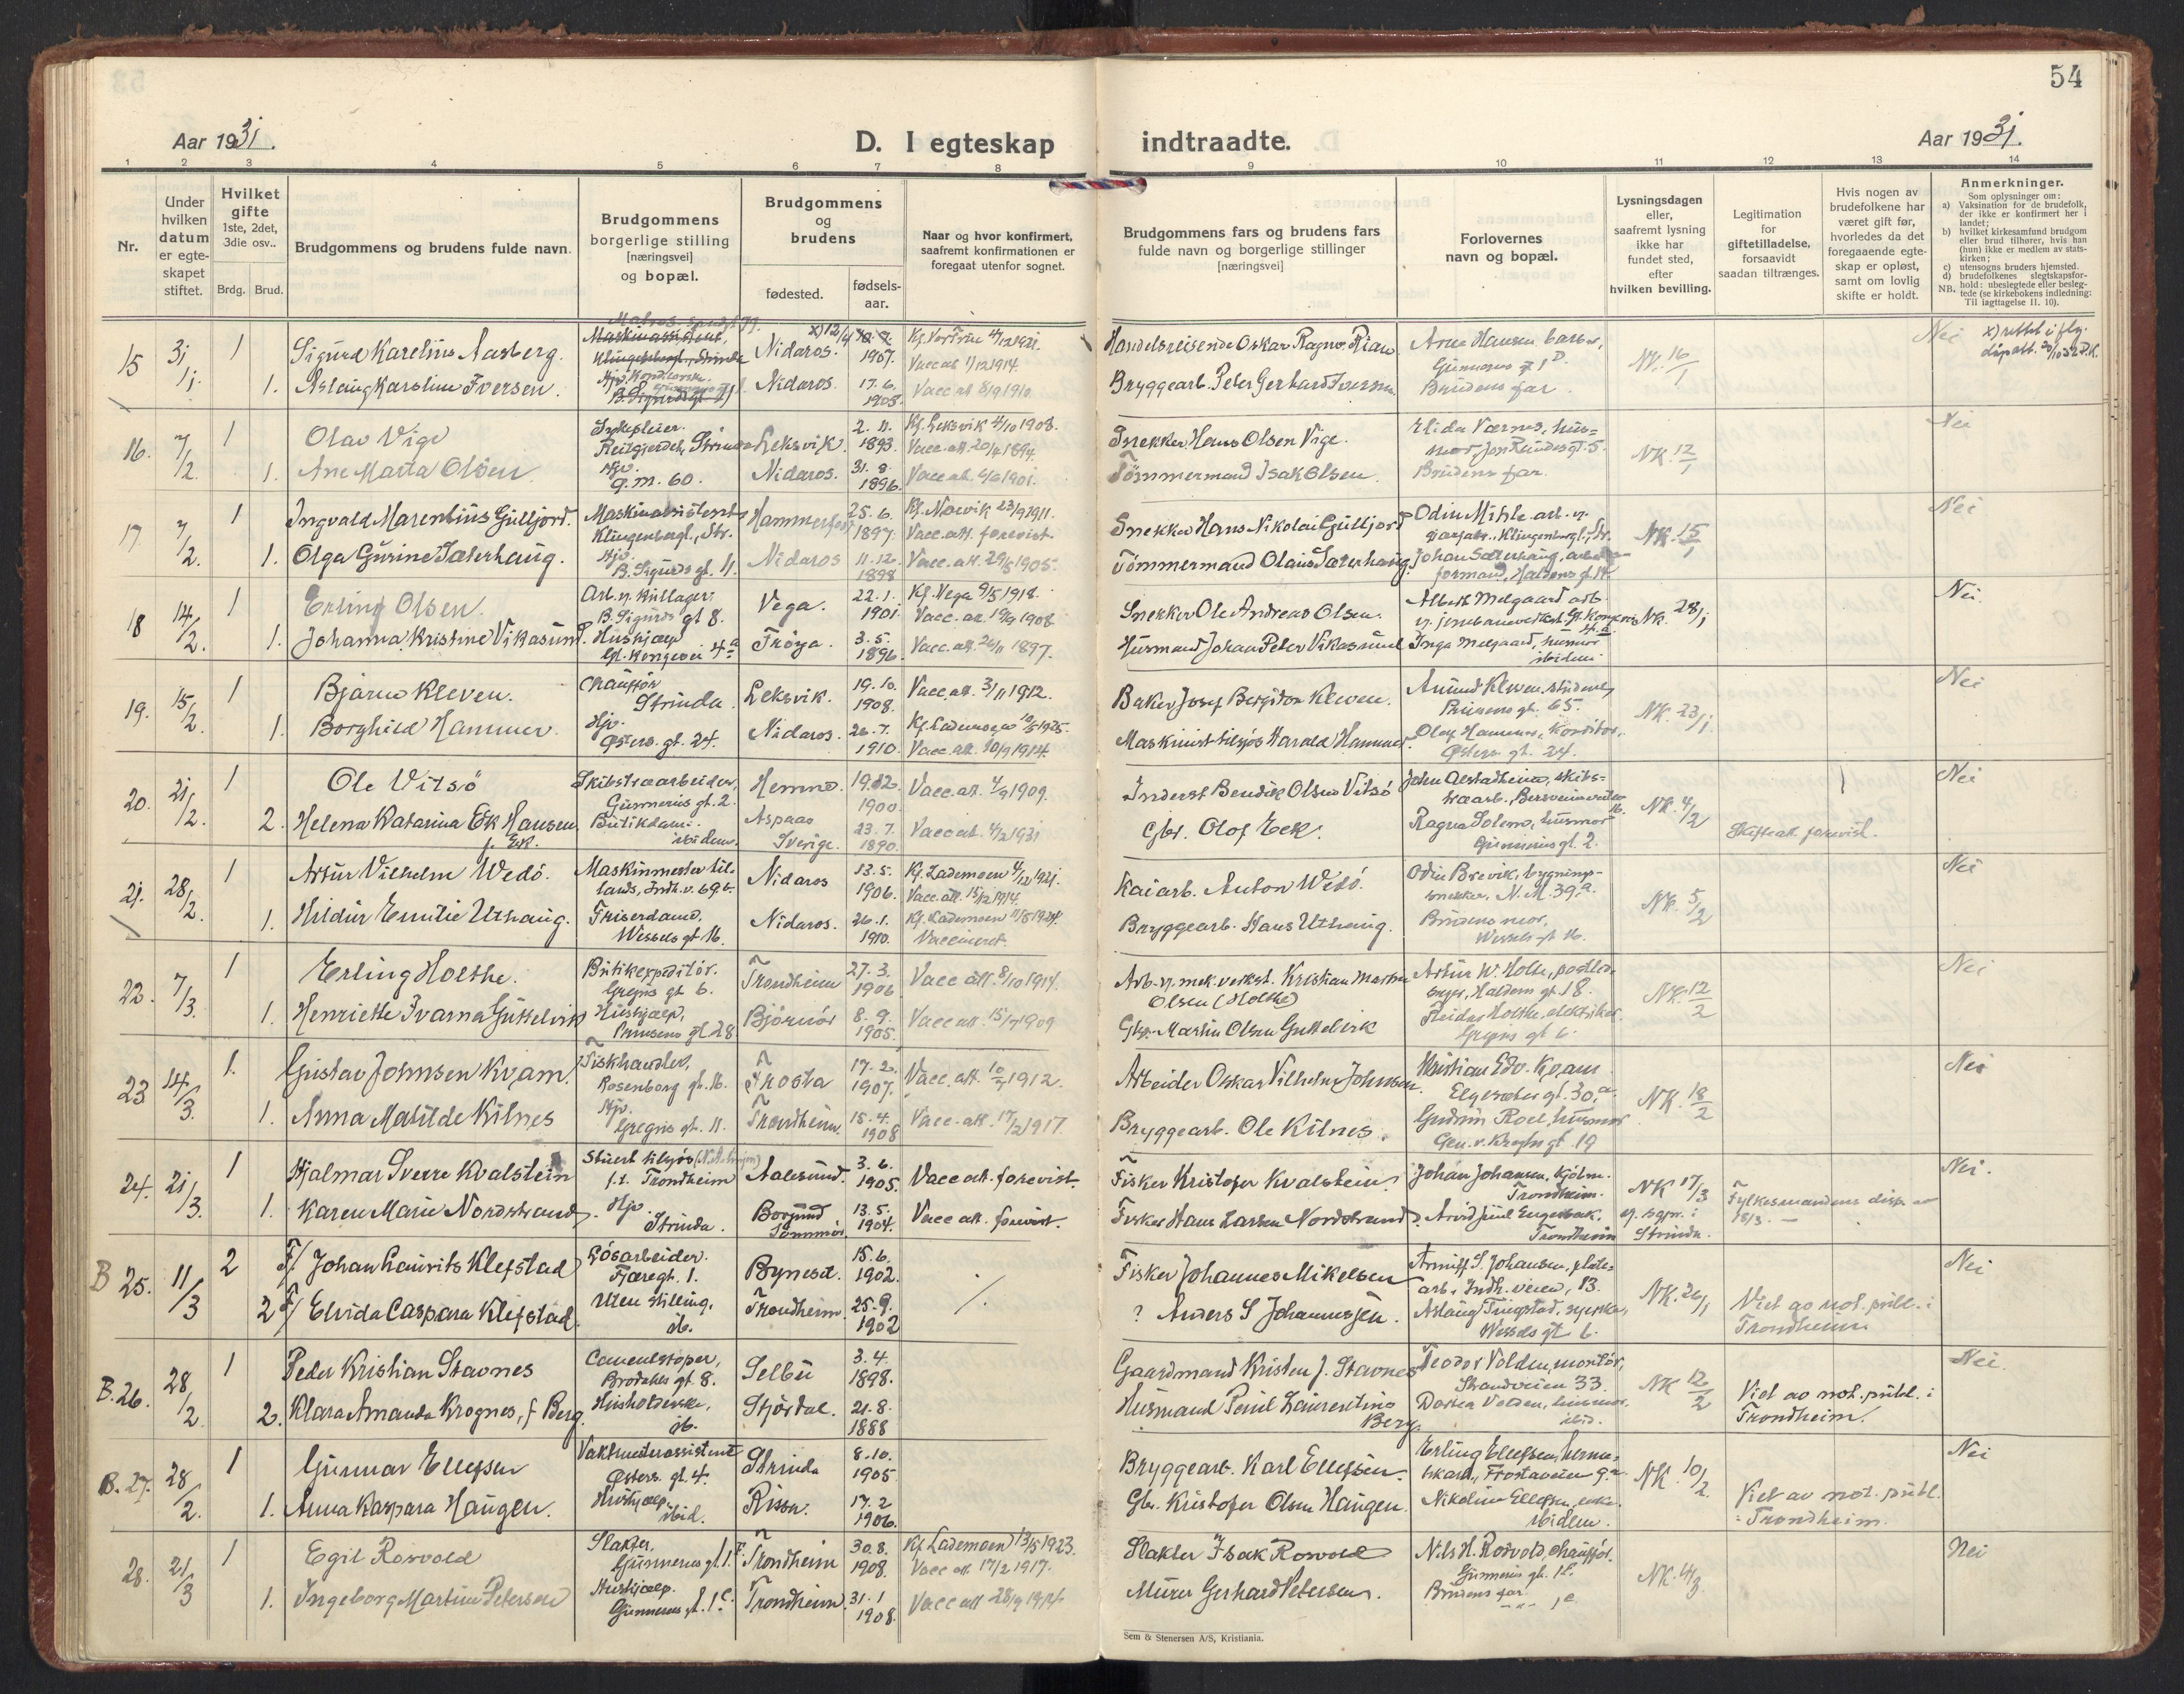 54
Aar 1931.
D. I egteskap indtraadte.
Aar 1931.
1 2 3 4 5 6 7 8 9 10 11 12 13 14
Nr.
Under hvilken datum er egte-skapet stiftet.
Hvilket gifte 1ste, 2det, 3die osv..
Brdg. Brud.
Brudgommens og brudens fulde navn.
Brudgommens borgerlige stilling [næringsvei] og bopæl.
Brudgommens og brudens
fødested.
fødsels-aar.
Naar og hvor konfirmert, saafremt konfirmationen er foregaat utenfor sognet.
Brudgommens fars og brudens fars fulde navn og borgerlige stillinger [næringsvei]
Forlovernes navn og bopæl.
Lysningsdagen eller, saafremt lysning ikke har fundet sted, efter hvilken bevilling.
Legitimation for giftetilladelse, forsaavidt saadan tiltrænges.
Hvis nogen av brudefolkene har været gift før, hvorledes da det foregaaende egte-skap er opløst, samt om lovlig skifte er holdt.
Anmerkninger.
Som oplysninger om:
a) Vaksination for de brudefolk, der ikke er konfirmert her i landet;
b) hvilket kirkesamfund brudgom eller brud tilhører, hvis han (hun) ikke er medlem av stats-kirken;
c) utensogns bruders hjemsted.
d) brudefolkenes slegtskapsfor-hold: ubeslegtede eller besleg-tede (se kirkebokens indledning:
NB. Til iagttagelse II. 10).
15 31/1. 1 Sigurd Karelius Aasberg. Nidaros. 1907. Vacc. att 1/12 1914 Handelsreisende Oskar Ragnv. Rian Arne Hansen, barber, NK. 16/1 Nei
1. Aslaug Karoline Iversen. Nidaros. 17.6. 1908. Bryggearb. Peter Gerhard Iversen Brudens far
16. 7/2. 1 Olav Vige Sykepleier. Leksvik. 2.11. 1893. Kf. Leksvik 4/10 1908. Vacc. att. 20/4 1894. Snekker Hans Olsen Vige. NK. 12/1 Nei
1. Ane Marta Olsen Hp. Ø.M. 60. Nidaros. 31.8. 1896. Vacc. att. 6/6 1901. Tömmermand Isak Olsen. Brudens far.
17. 7/2. 1 Ingvald Marentius Gulljord. Maskinassistent Klingenbergl., Str. Hammerfest 25.6. 1897. Kf. Narvik 23/9 1911. Vacc. att. forevist. Snekker Hans Nikolai Gulljord NK. 15/1 Nei
1. Olga Gurine Sæterhaug. Hp. B. Sigurds gt. 11. Nidaros 11.12. 1898 Vacc. att. 29/8 1905. Tömmermand Olaus Sæterhaug. Johan Sæterhaug, formand, Haldens gt. 14
18 14/2. 1 Erling Olsen. Arb. v. kullager. B. Sigurds gt 8. Vega. 22.1. 1901. Kf. Vega 9/5 1918. Vacc. att. 19/9 1908 Snekker Ole Andreas Olsen. Albert Melgaard arb. NK. 28/1 Nei.
1. Johanna Kristine Vikasund. Hushjælp Gl. Kongevei 4a Fröya. 3.5. 1896. Vacc. att. 26/11 1897. Husmand Johan Peter Vikasund Inga Melgaard, husmor ibidem
19. 15/2. 1 Bjarne Kleven. Chauffør Strinda. Leksvik. 19.10. 1908. Vacc. att. 3/11 1912. Baker Josef Bergiton Kleven. Amund Kleven, student, Prinsens gt. 65. NK. 23/1 Nei
1. Borghild Hammer. Hp. Østers. gt. 24. Nidaros. 26.7. 1910. Vacc. att. 10/9 1914. Maskinist tilsjös Harald Hammer. Olaf Hammer, konditor, Østers. gt. 24.
20. 21/2. 1 Ole Vitsö Skibstraarbeider, Gunnerus gt. 2. Hemne. 19.12. 1900. Vacc. att. 4/9 1909. Inderst Bendik Olsen Vitsö NK. 4/2 1 Nei
2. Helena Katarina Ek Hansen f. Ek. Butikdame. ibidem. Aspaas Sverige. 23.7. 1890. Vacc. att. 4/2 1931 Gbr. Olof Eek. Ragna Solem, husmor Gunnerus gt. 2. Skifteatt. forevist.
21. 28/2. 1 Artur Vilhelm Wedö. Maskinmester til-lands, Indh. v. 69b. Nidaros 13.5. 1906. Kf. Lademoen 4/12 1921. Vacc. att. 15/12 1914. Kaiarb. Anton Wedö. Odin Brevik, bygnings-snekker, N. M. 39.a. NK. 5/2 Nei
1. Hildur Emilie Uthaug. Friserdame. Wessels gt 16. Nidaros. 26.1. 1910. Kf. Lademoen 11/5 1924. Vaccineret. Bryggearb. Hans Uthaug. Brudens mor, Wessels gt 16.
22. 7/3. 1 Erling Holthe. Butikexpeditör. Gregus gt 6. Trondheim 27.3. 1906 Vacc att. 8/10 1914. Arb. v. mek. verkst. Kristian Martin Olsen (Holthe) Artur W. Holthe, Haldens gt 18. NK. 12/2 Nei
1. Henriette Ivarna Guttelvik Hushjælp, Prinsens gt 28 Björnör 8.9. 1905. Vacc att. 15/7 1909 Gbr. Martin Olsen Guttelvik Gregus gt 6.
23 14/3. 1. Gustav Johnsen Kvam. Fiskhandler, Rosenborg gt. 16. Frosta 17.2. 1907. Vacc. att. 10/7 1912. Arbeider Oskar Vilhelm Johnsen. Kristian Edv. Kvam. Elgesæter gt. 30.a. NK. 18/2 Nei
1. Anna Matilde Kilnes Hp. Gregus gt. 11. Trondheim. 15.4. 1908 Vacc. att. 17/2 1917. Bryggearb. Ole Kilnes. Gudrun Roel, husmor Gen. v. Kroghs gt. 19
24. 21/3. 1 Hjalmar Sverre Kvalstein Stuert tilsjös f.t. Trondheim Aalesund. 3.6. 1905. Vacc att. forevist. Fisker Kristofer Kvalstein. Johan Johansen, Trondheim. NK 17/3 Fylkesmandens disp. av 18/3. Nei.
1. Karen Marie Nordstrand. Hp. Strinda. Borgund Sunnmör. 13.5. 1904. Vacc att. forevist. Fisker Hans Larsen Nordstrand. Trondheim Strinda.
B 25. 11/3 2 F/ Johan Laurits Klefstad Lösarbeider. Fjæregt. 1. Bynesset. 15.6. 1902. Fisker Johannes Mikelsen arb., Indh. veien, 13. NK. 26/1 Viet av not. publ. i Trondheim Nei
2 F/ Elvida Caspara Klefstad. Uten stilling. ib. Trondheim. 25.9. 1902 ? Anders S Johannessen. Wessels gt 6.
B. 26. 28/2. 1 Peder Kristian Stavnes Cementstøper, Brodahls gt 8. Selbu 3.4. 1898. Gaardmand Kristen J. Stavnes Teodor Volden, montör, Strandveien 33. NK 12/2 Viet av not. publ. i Trondheim. Nei.
2. Klara Amanda Krognes, f Berg. Husholderske, ib. Stjördal. 21.8. 1888 Husmand Paul Laurentius Berg. Dorthea Volden, husmor, ibid.
B. 27. 28/2. 1 Gunnar Ellefsen Vaktmesterassistent Østers. gt. 4. Strinda 8.10. 1905 Bryggearb. Karl Ellefsen. Erling Ellefsen, Frostaveien 9.a NK. 10/2. Viet av not. publ. i Trondheim. Nei
1. Anna Kaspara Haugen. Hushjælp. ibid. Rissa. 17.2 1906. Gbr. Kristofer Olsen Haugen. Nikoline Ellefsen, enke. ibidem.
28. 21/3 1 Egil Rosvold Slakter. Gunnerus gt. 1.F Trondheim 30.8. 1908. Kf. Lademoen 13/5 1923. Vacc att. 17/2 1917. Slakter Isak Rosvold Nils H. Rosvold, chauffør. Gunnerus gt. NK. 4/3. Nei
1. Ingeborg Martine Petersen Hushjælp. Gunnerus gt. 1.c. Trondheim. 31.1 1908. Vacc att 28/9 1914 Murer Gerhard Petersen. Brudens far.
Sem & Stenersen A/S, Kristiania.